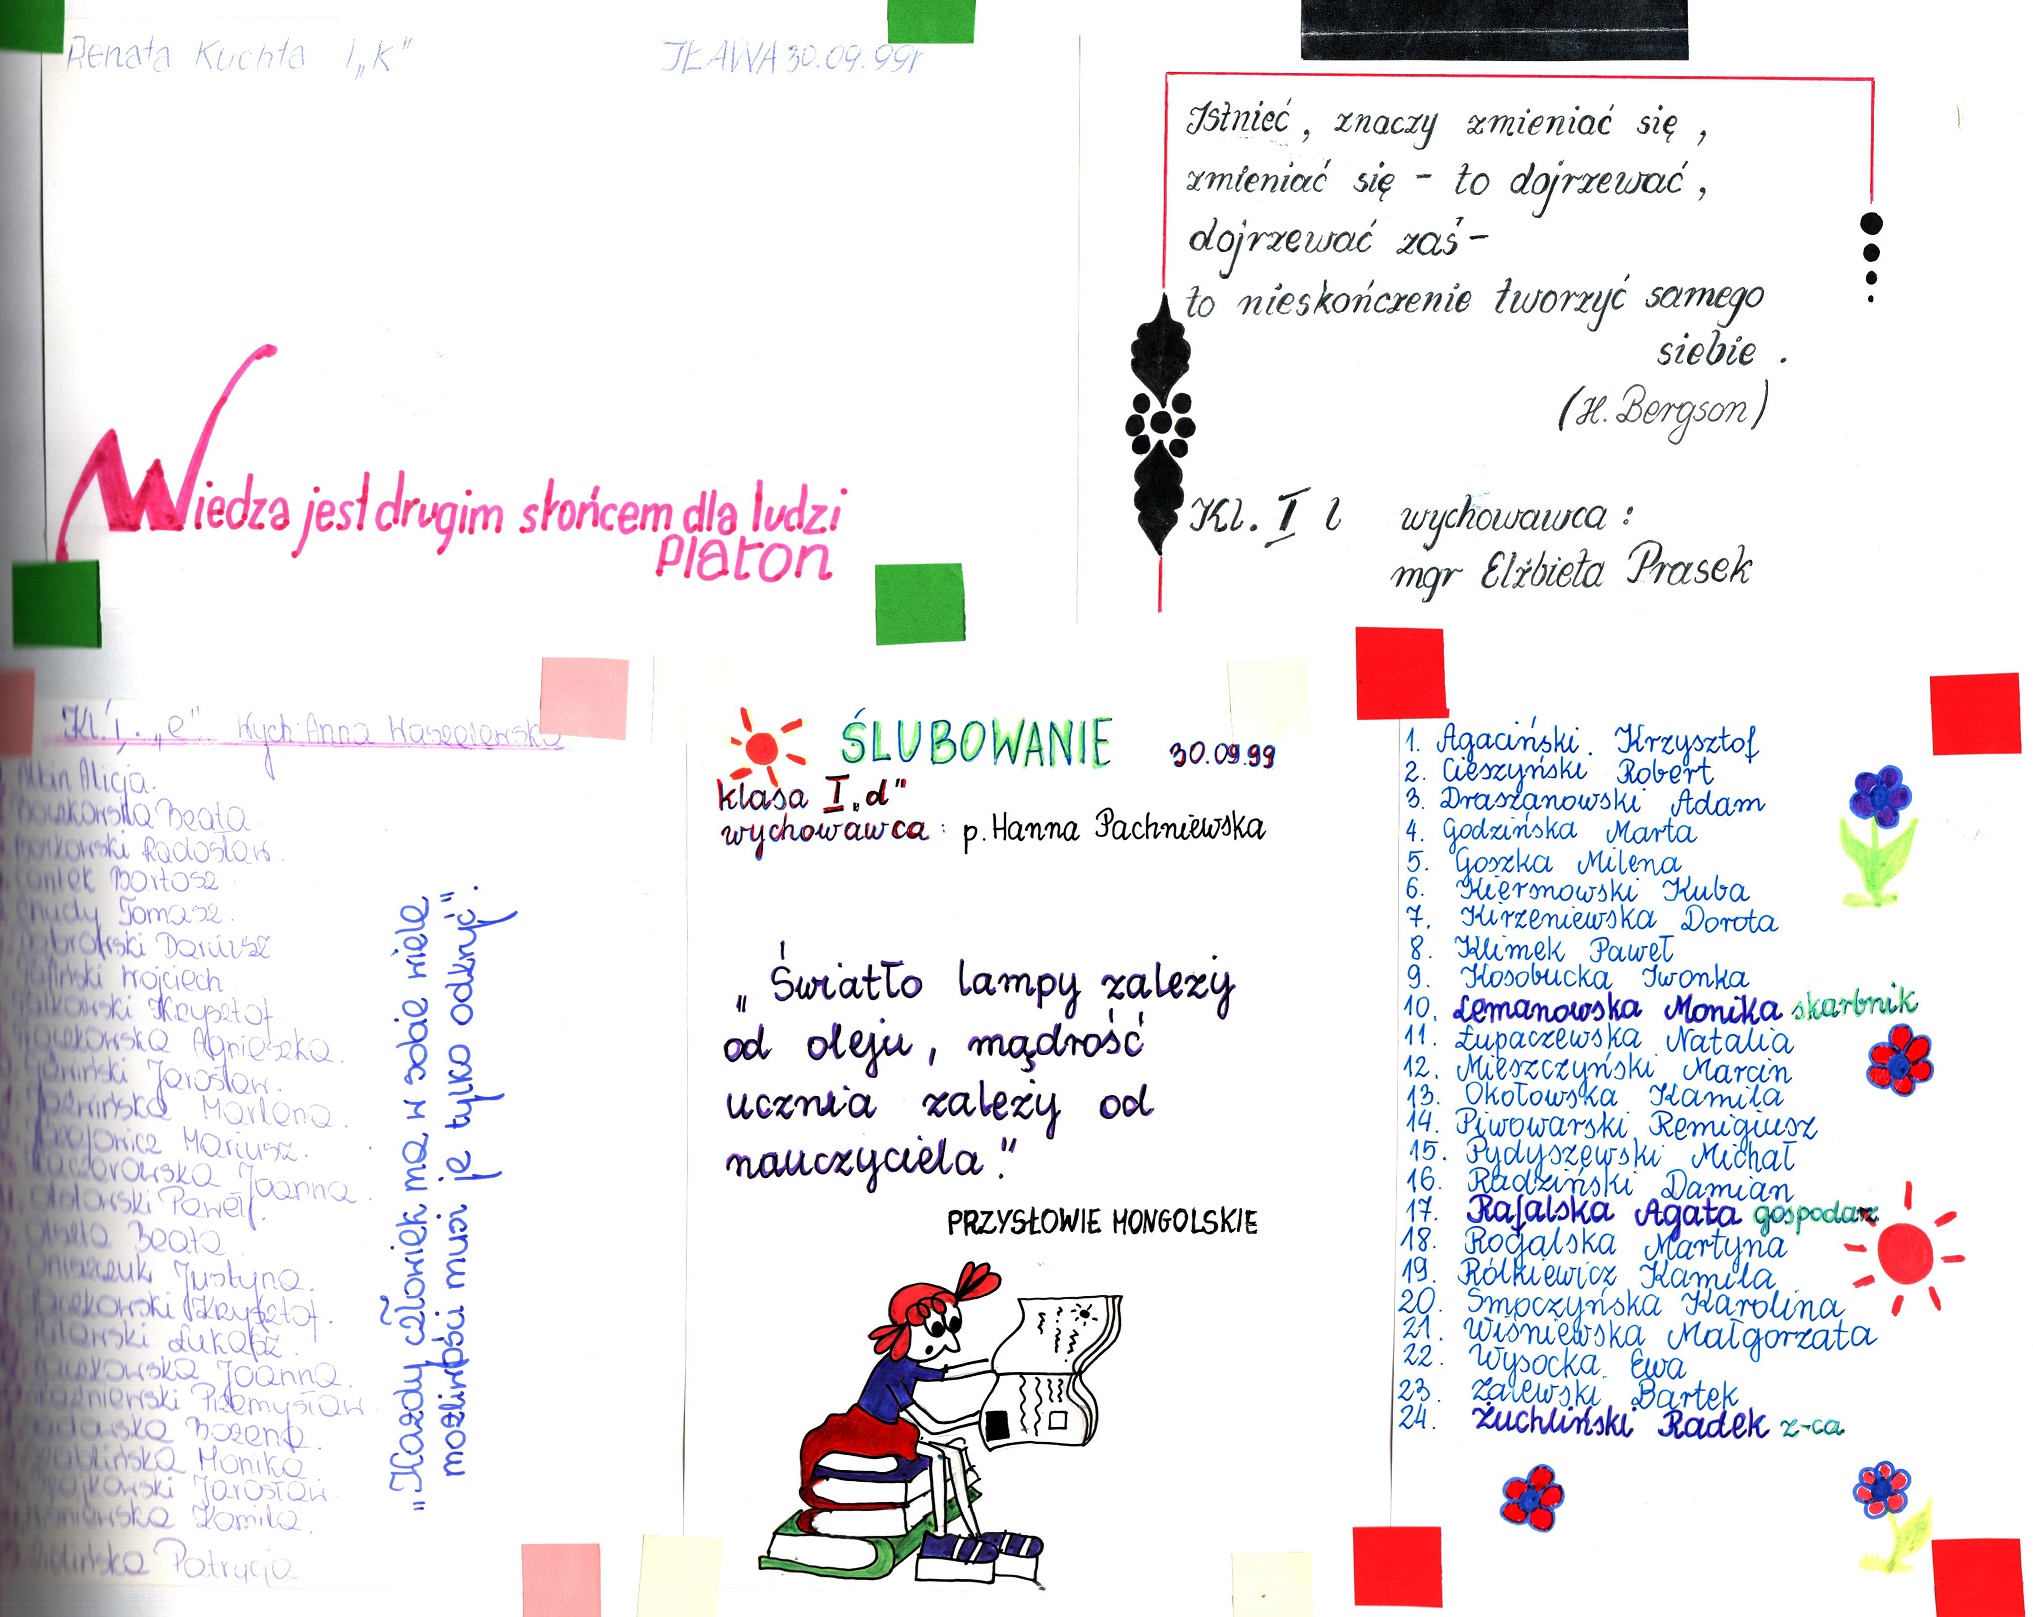 Renata Kuchta I„K"
IŁAWA 30.09.99r
Wiedza jest drugim słońcem dla ludzi
Platon
Istnieć, znaczy zmieniać się,
zmieniać się - to dojrzewać,
dojrzewać zaś -
to nieskończenie tworzyć samego
siebie.
(H. Bergson)
Kl. I l wychowawca:
mgr Elżbieta Prasek
Kl. I. „e". Wych. Anna
Albin Alicja.
Beata
Borkowski Radosław.
Bartosz
Chudy Tomasz.
Dąbrowski Dariusz
Wojciech
Krzysztof
Agnieszka.
Jarosław.
Marlena.
Mariusz.
Kaczorowska Joanna.
Paweł.
Beata
Oniszczuk Justyna.
Krzysztof.
Łukasz.
Joanna.
Przemysław
Bożena.
Monika
Jarosław
Kamila.
Patrycja
„Każdy człowiek ma w sobie wiele
możliwości musi je tylko odkryć".
ŚLUBOWANIE 30.09.99
klasa I„d"
wychowawca: p. Hanna Pachniewska
„Światło lampy zależy
od oleju, mądrość
ucznia zależy od
nauczyciela."
PRZYSŁOWIE MONGOLSKIE
1. Agaciński. Krzysztof
2. Cieszyński Robert
3. Draszanowski Adam
4. Godzińska Marta
5. Goszka Milena
6. Kiersnowski Kuba
7. Kirzeniewska Dorota
8. Klimek Paweł
9. Kosobucka Iwonka
10. Lemanowska Monika skarbnik
11. Łupaczewska Natalia
12. Mieszczyński Marcin
13. Okołowska Kamila
14. Piwowarski Remigiusz
15. Pydyszewski Michał
16. Radziński Damian
17. Rafalska Agata gospodarz
18. Rogalska Martyna
19. Rólkiewicz Kamila
20. Smoczyńska Karolina
21. Wiśniewska Małgorzata
22. Wysocka. Ewa
23. Zalewski Bartek
24. Żuchliński Radek z-ca